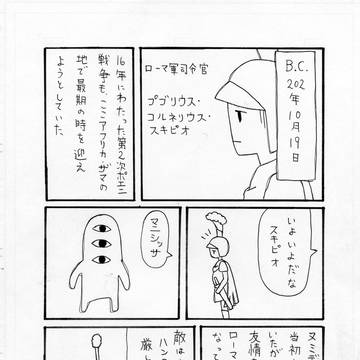 B.C.
202年10月19日
ローマ軍司令官
プブリウス・
コルネリウス・
スキピオ
16年にわたった第2次ポエニ
戦争も、ここアフリカ・ザマの
地で最期の時を迎え
ようとしていた
いよいよだな
スキピオ
マニシッサ
ヌミデ
当初
いたが
友情
ローマ
なって
敵は
ハン
厳し